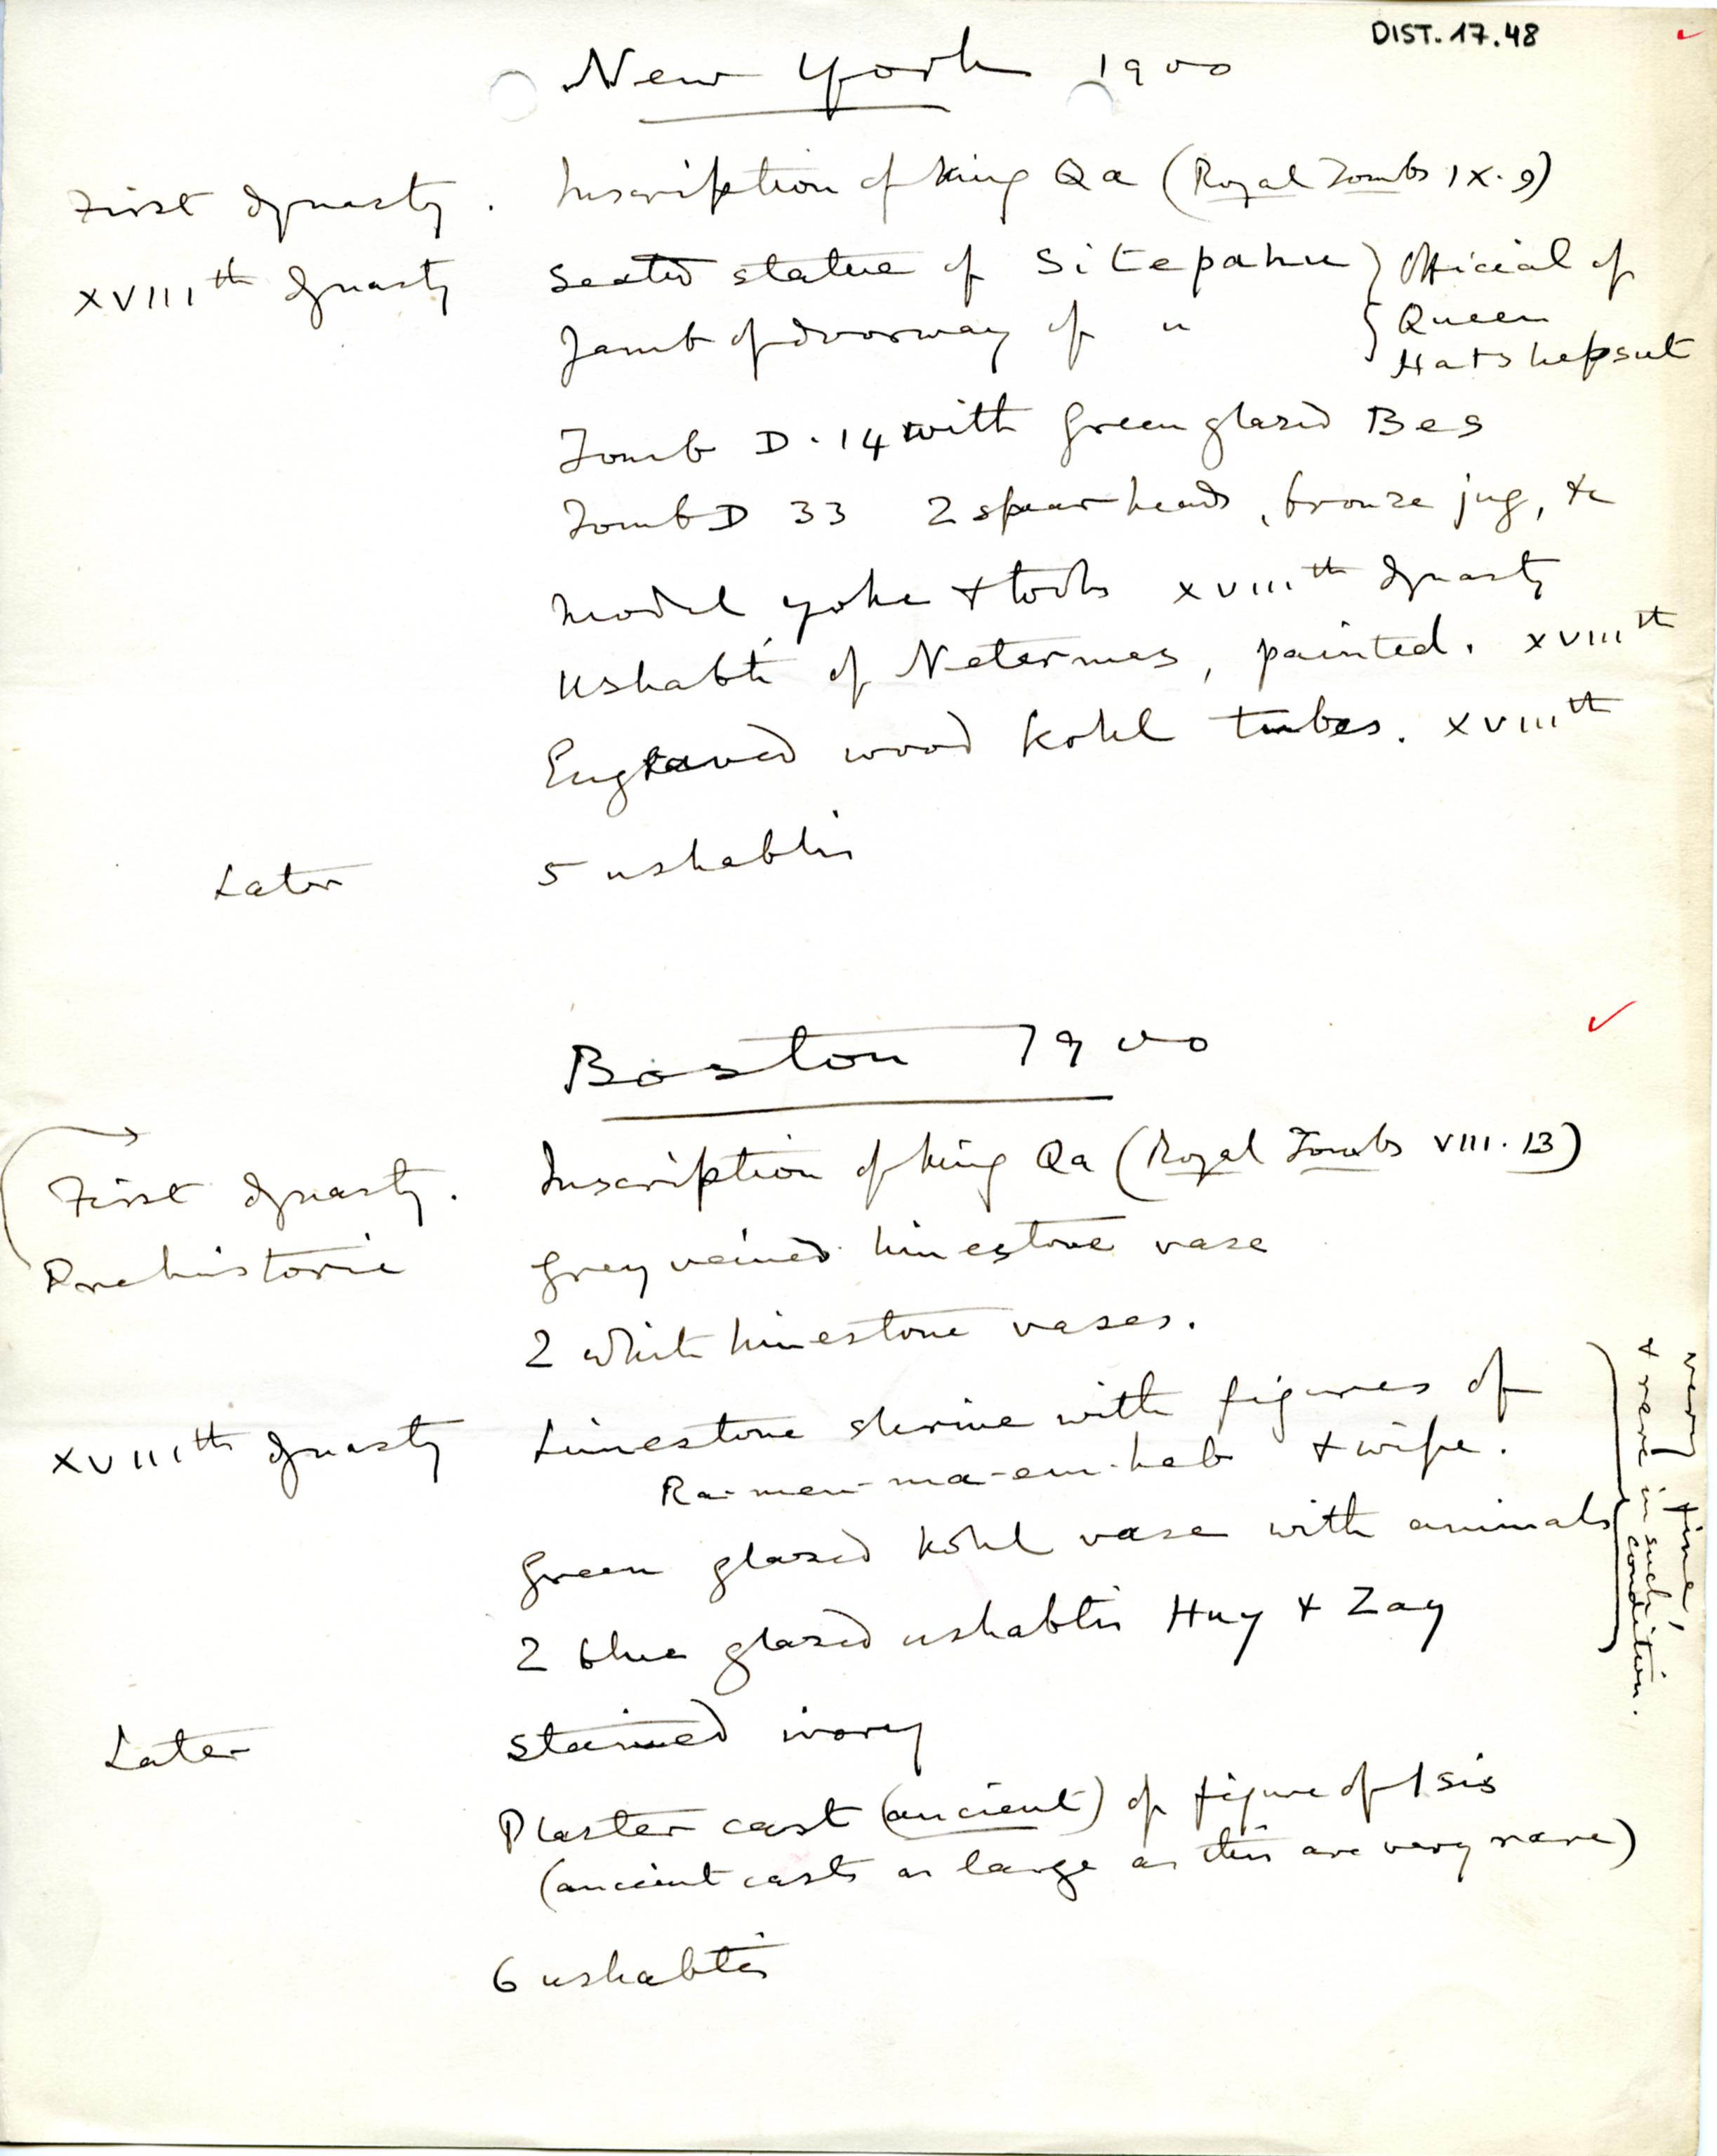 DIST. 17.48
New York 1900
First dynasty. Inscription of King Qa (Royal Tombs IX. 9)
XVIIIth dynasty Seated statue of Sitepahu } Official of
Jamb of doorway of " } Queen
Hatshepsut
Tomb D. 14 with green glazed Bes
Tomb D 33 2 spear heads, bronze jug, &c
Model yoke + tools XVIIIth dynasty
Ushabti of Netermes, painted. XVIIIth
Engraved wood Kohl tubes. XVIIIth
Later 5 ushabtis
Boston 1900
First dynasty. Inscription of King Qa (Royal Tombs VIII. 13)
Prehistoric Grey veined limestone vase
2 white limestone vases.
XVIIIth dynasty Limestone shrine with figures of
Ra-men-ma-em-heb + wife.
Green glazed Kohl vase with animals
2 blue glazed ushabtis Huy + Zay
very fine,
+ rare in such
condition.
Later Stained ivory
Plaster cast (ancient) of figure of Isis
(ancient casts as large as this are very rare)
6 ushabtis